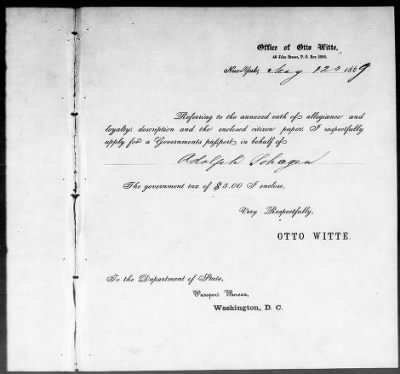 Office of Otto Witte,
New-York, May 12 1869
Referring to the annexed oath of allegiance and
loyalty, description and the enclosed citizen paper, I respectfully
apply for a Governments passport in behalf of
Adolph Schagen
The government tax of $5.00 I enclose.
Very Respectfully,
OTTO WITTE.
To the Department of State,
Passport Bureau,
Washington, D. C.